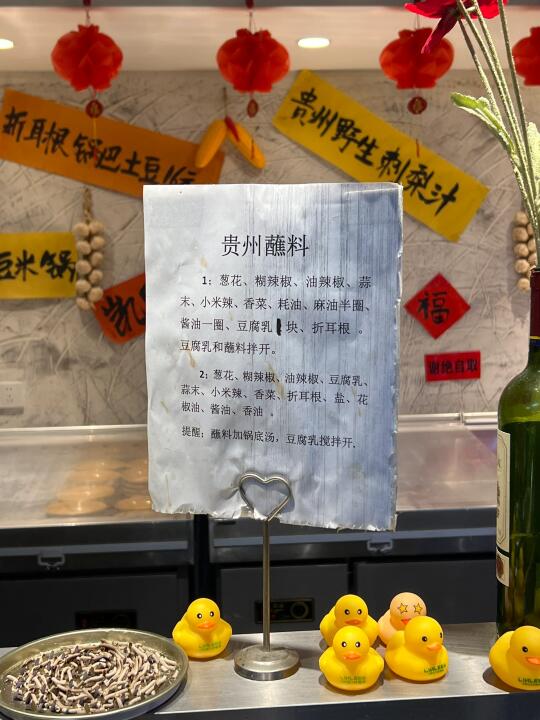 折耳根锅巴土豆
贵州野生刺梨汁
豆米锅
凯
福
谢绝自取
贵州蘸料
1：葱花、糊辣椒、油辣椒、蒜
末、小米辣、香菜、耗油、麻油半圈、
酱油一圈、豆腐乳 块、折耳根 。
豆腐乳和蘸料拌开。
2：葱花、糊辣椒、油辣椒、豆腐乳、
蒜末、小米辣、香菜、折耳根、盐、花
椒油、酱油、香油 。
提醒：蘸料加锅底汤，豆腐乳搅拌开.